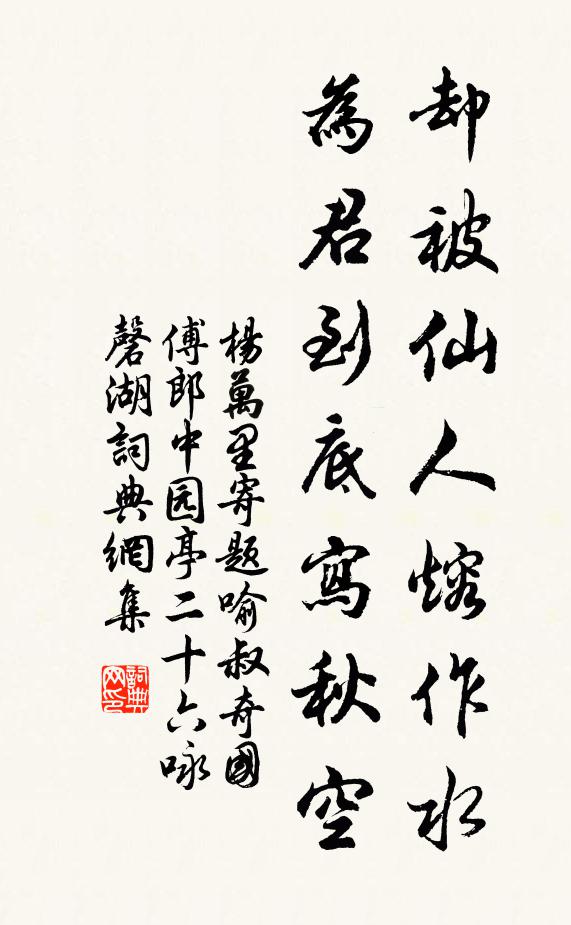 却被仙人熔作水
為君到底寫秋空
楊萬里寄題喻叔奇國
傅郎中园亭二十六咏
磬湖詞典網集
詞典网印